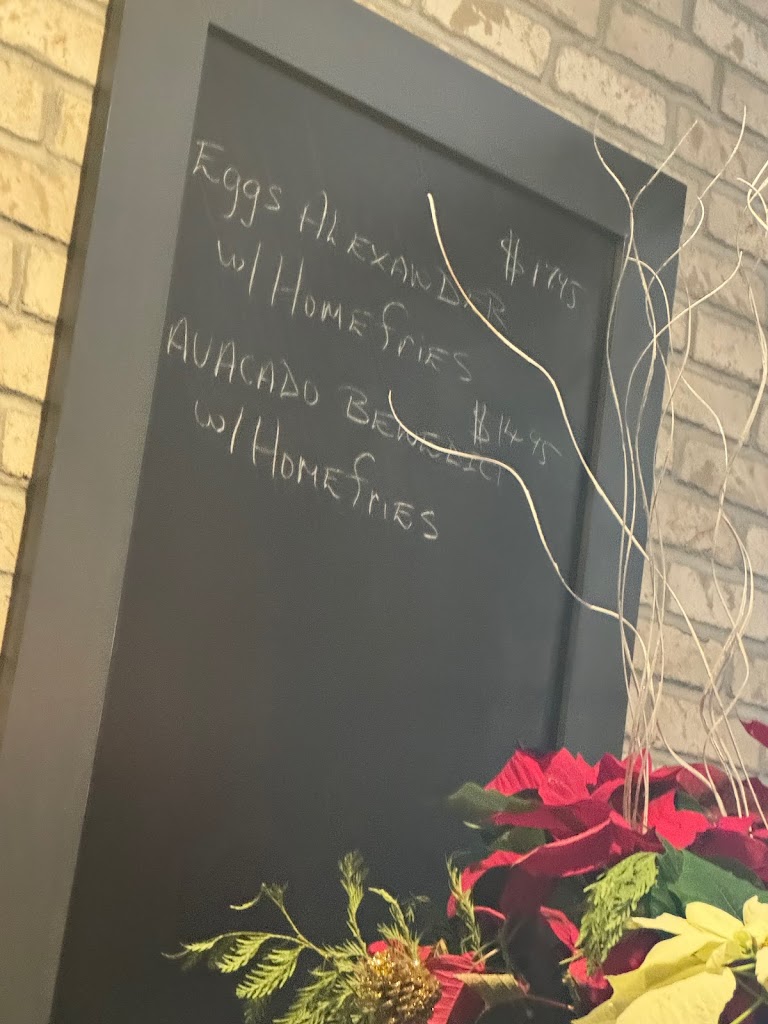 Eggs ALEXANDER $17.95
w/ HOMEfries
AVACADO BENEDICT $14.95
w/ HOMEfries